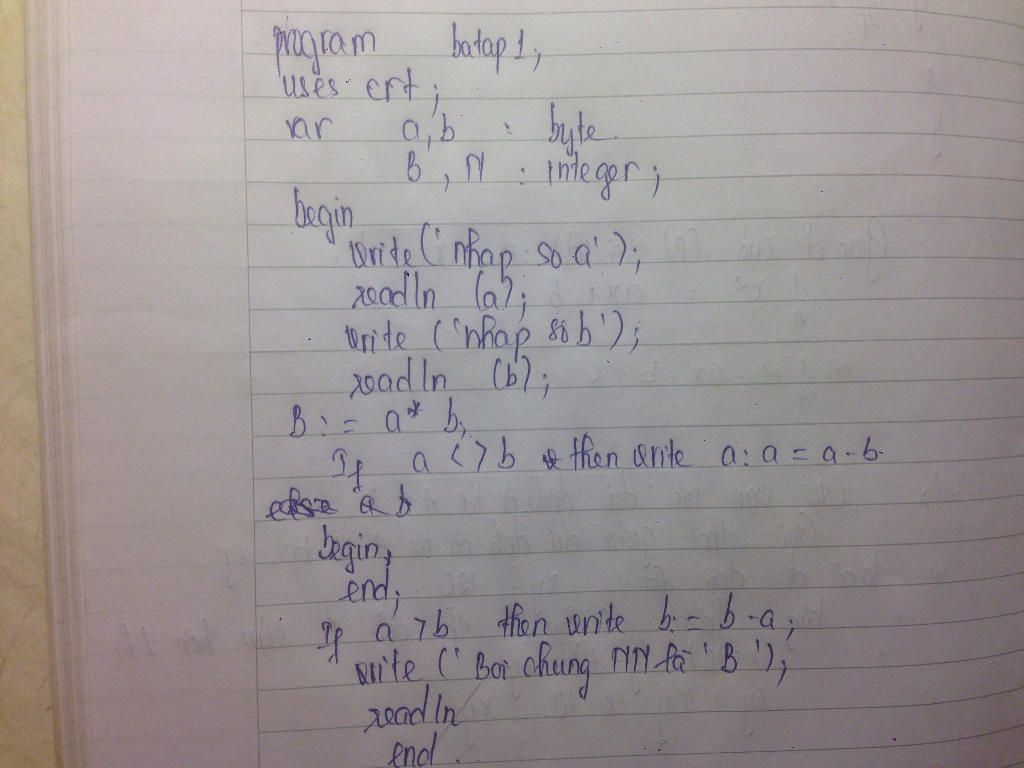 program batap1;
uses crt;
var a,b : byte.
B, N : integer;
begin
write('nhap so a');
readln (a);
write ('nhap so b');
readln (b);
B := a* b;
If a <> b then write a: a = a-b.
else a b
begin;
end;
If a > b then write b: = b-a;
write ('Boi chung NN là 'B');
readln
end.